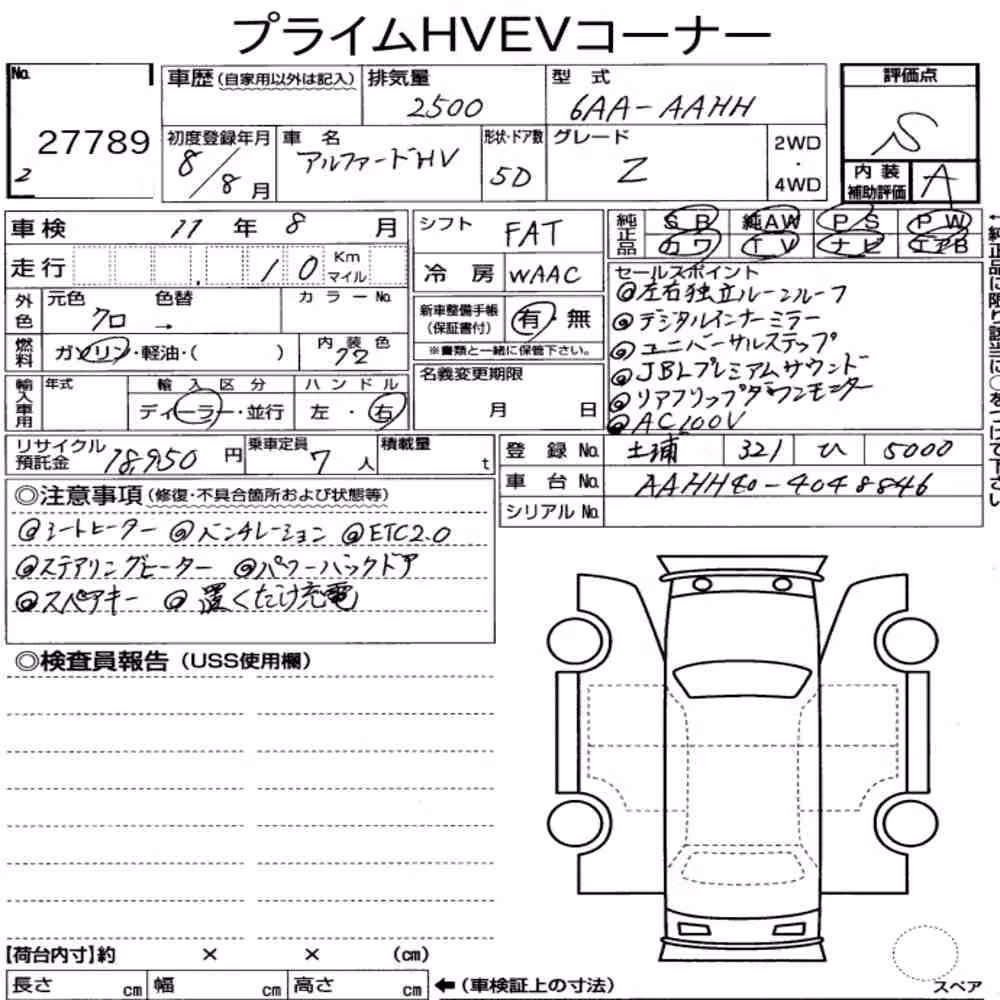 プライムHVEVコーナー
No. 27789 2
車歴(自家用以外は記入) 排気量 2500 型式 6AA-AAHH
評価点 S
初度登録年月 8/8月 車名 アルファードHV 形状・ドア数 5D グレード Z 2WD・4WD
内装補助評価 A
車検 11年8月 シフト FAT
純正品 SR 純AW PS PW
カワ TV ナビ エアB
走行 10 Km マイル 冷房 WAAC
←純正品に限り該当に○をつけて下さい
外色 元色 クロ 色替 → カラーNo.
新車整備手帳(保証書付) 有・無
※書類と一緒に保管下さい。
燃料 ガソリン・軽油・( ) 内装色 72
輸入車用 年式 輸入区分 ディーラー・並行 ハンドル 左・右
名義変更期限 月 日
セールスポイント
◎左右独立ムーンルーフ
◎デジタルインナーミラー
◎ユニバーサルステップ
◎JBLプレミアムサウンド
◎リアフリップダウンモニター
◎AC100V
リサイクル預託金 18,950円 乗車定員 7人 積載量 t
登録No. 土浦 321 ひ 5000
車台No. AAHH40-4048846
シリアルNo.
◎注意事項(修復・不具合箇所および状態等)
◎シートヒーター ◎ベンチレーション ◎ETC2.0
◎ステアリングヒーター ◎パワーバックドア
◎スペアキー ◎置くだけ充電
◎検査員報告(USS使用欄)
【荷台内寸】約 × × (cm)
長さ cm 幅 cm 高さ cm ←(車検証上の寸法)
スペア